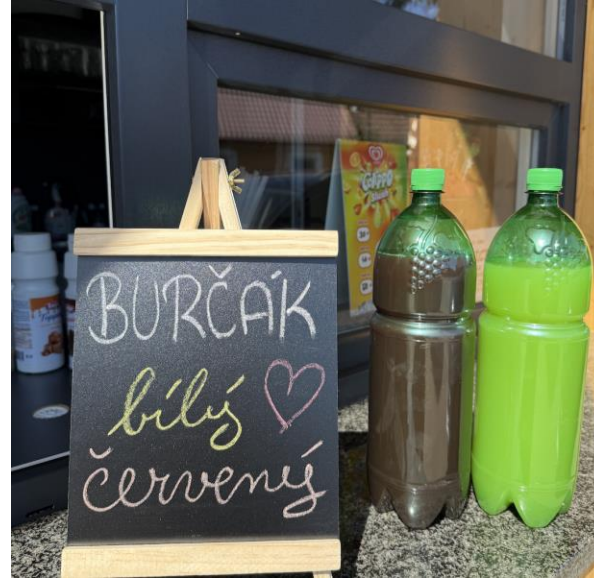 BURČÁK
bílý
červený